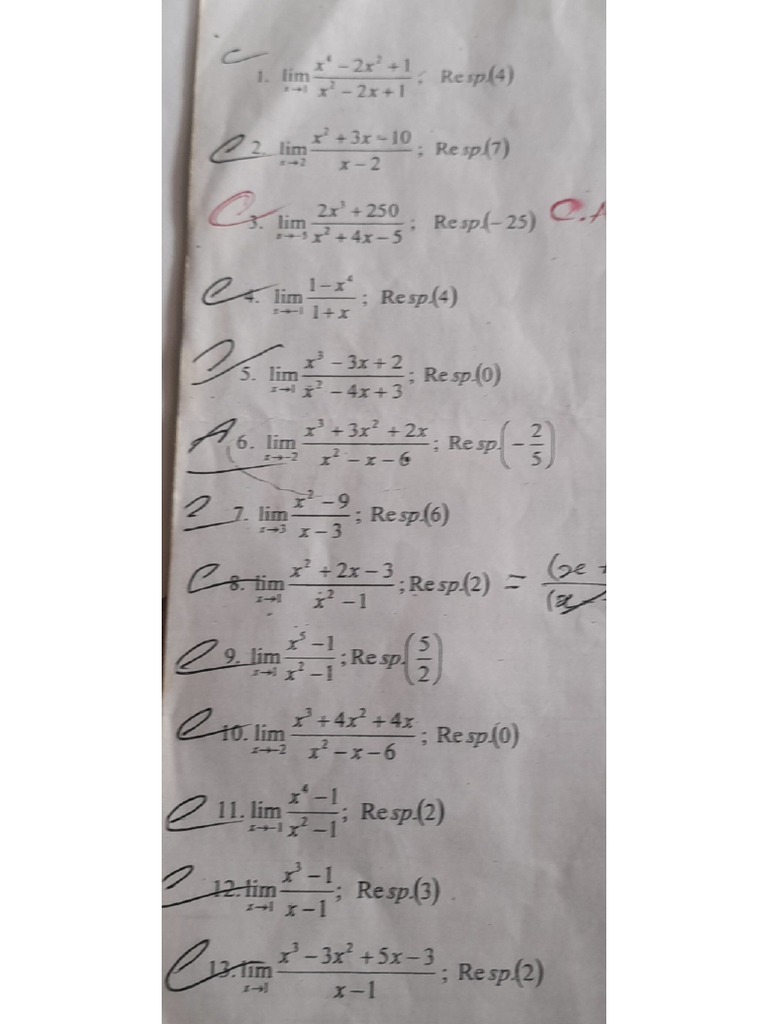 1. lim x→1 (x⁴ − 2x² + 1)/(x² − 2x + 1); Resp.(4)
2. lim x→2 (x² + 3x − 10)/(x − 2); Resp.(7)
3. lim x→−5 (2x³ + 250)/(x² + 4x − 5); Resp.(−25)
4. lim x→−1 (1 − x⁴)/(1 + x); Resp.(4)
5. lim x→1 (x³ − 3x + 2)/(x² − 4x + 3); Resp.(0)
6. lim x→−2 (x³ + 3x² + 2x)/(x² − x − 6); Resp.(−2/5)
7. lim x→3 (x² − 9)/(x − 3); Resp.(6)
8. lim x→1 (x² + 2x − 3)/(x² − 1); Resp.(2) =
9. lim x→1 (x⁵ − 1)/(x² − 1); Resp.(5/2)
10. lim x→−2 (x³ + 4x² + 4x)/(x² − x − 6); Resp.(0)
11. lim x→−1 (x⁴ − 1)/(x² − 1); Resp.(2)
12. lim x→1 (x³ − 1)/(x − 1); Resp.(3)
13. lim x→1 (x³ − 3x² + 5x − 3)/(x − 1); Resp.(2)